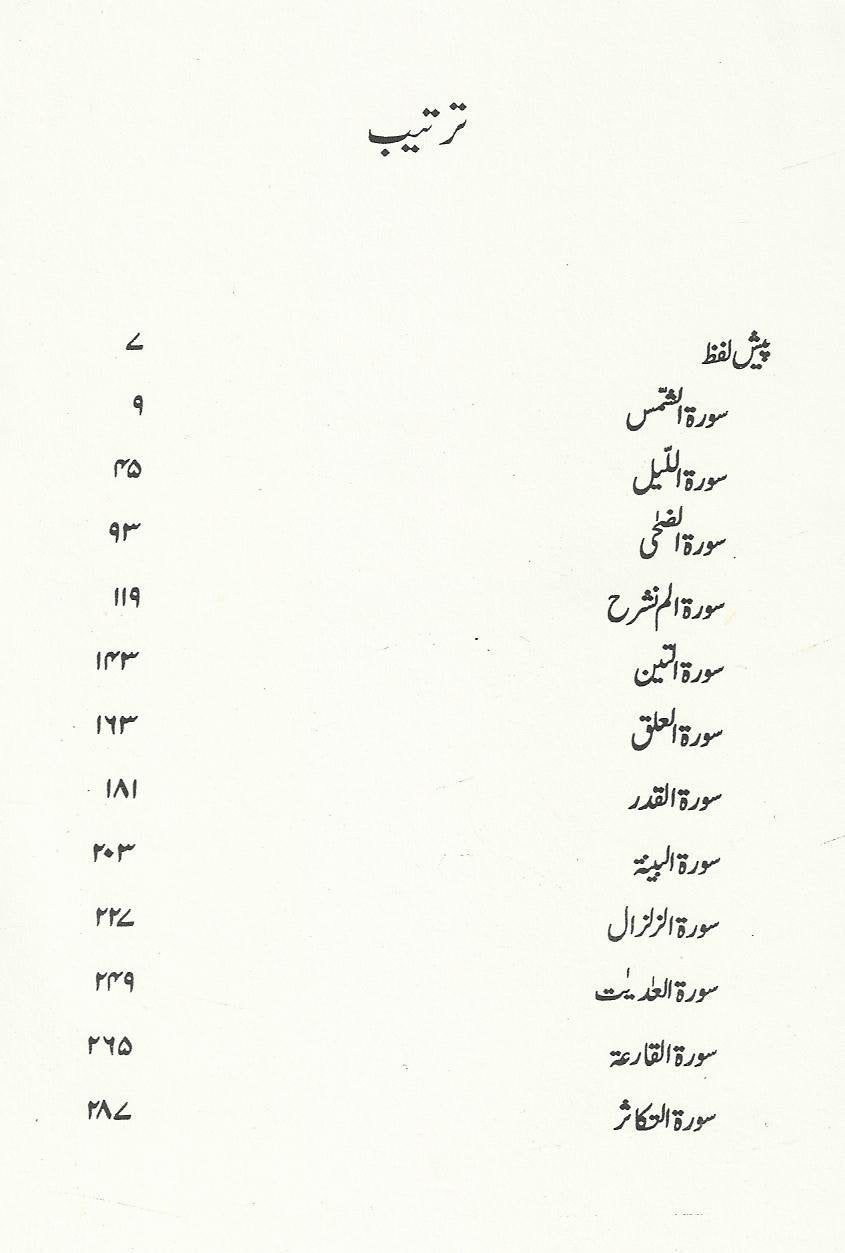 ترتیب
پیش لفظ ۷
سورۃ الشّمس ۹
سورۃ اللّیل ۴۵
سورۃ الضحٰی ۹۳
سورۃ الم نشرح ۱۱۹
سورۃ التین ۱۴۳
سورۃ العلق ۱۶۳
سورۃ القدر ۱۸۱
سورۃ البینۃ ۲۰۳
سورۃ الزلزال ۲۲۷
سورۃ العٰدیٰت ۲۴۹
سورۃ القارعۃ ۲۶۵
سورۃ التکاثر ۲۸۷